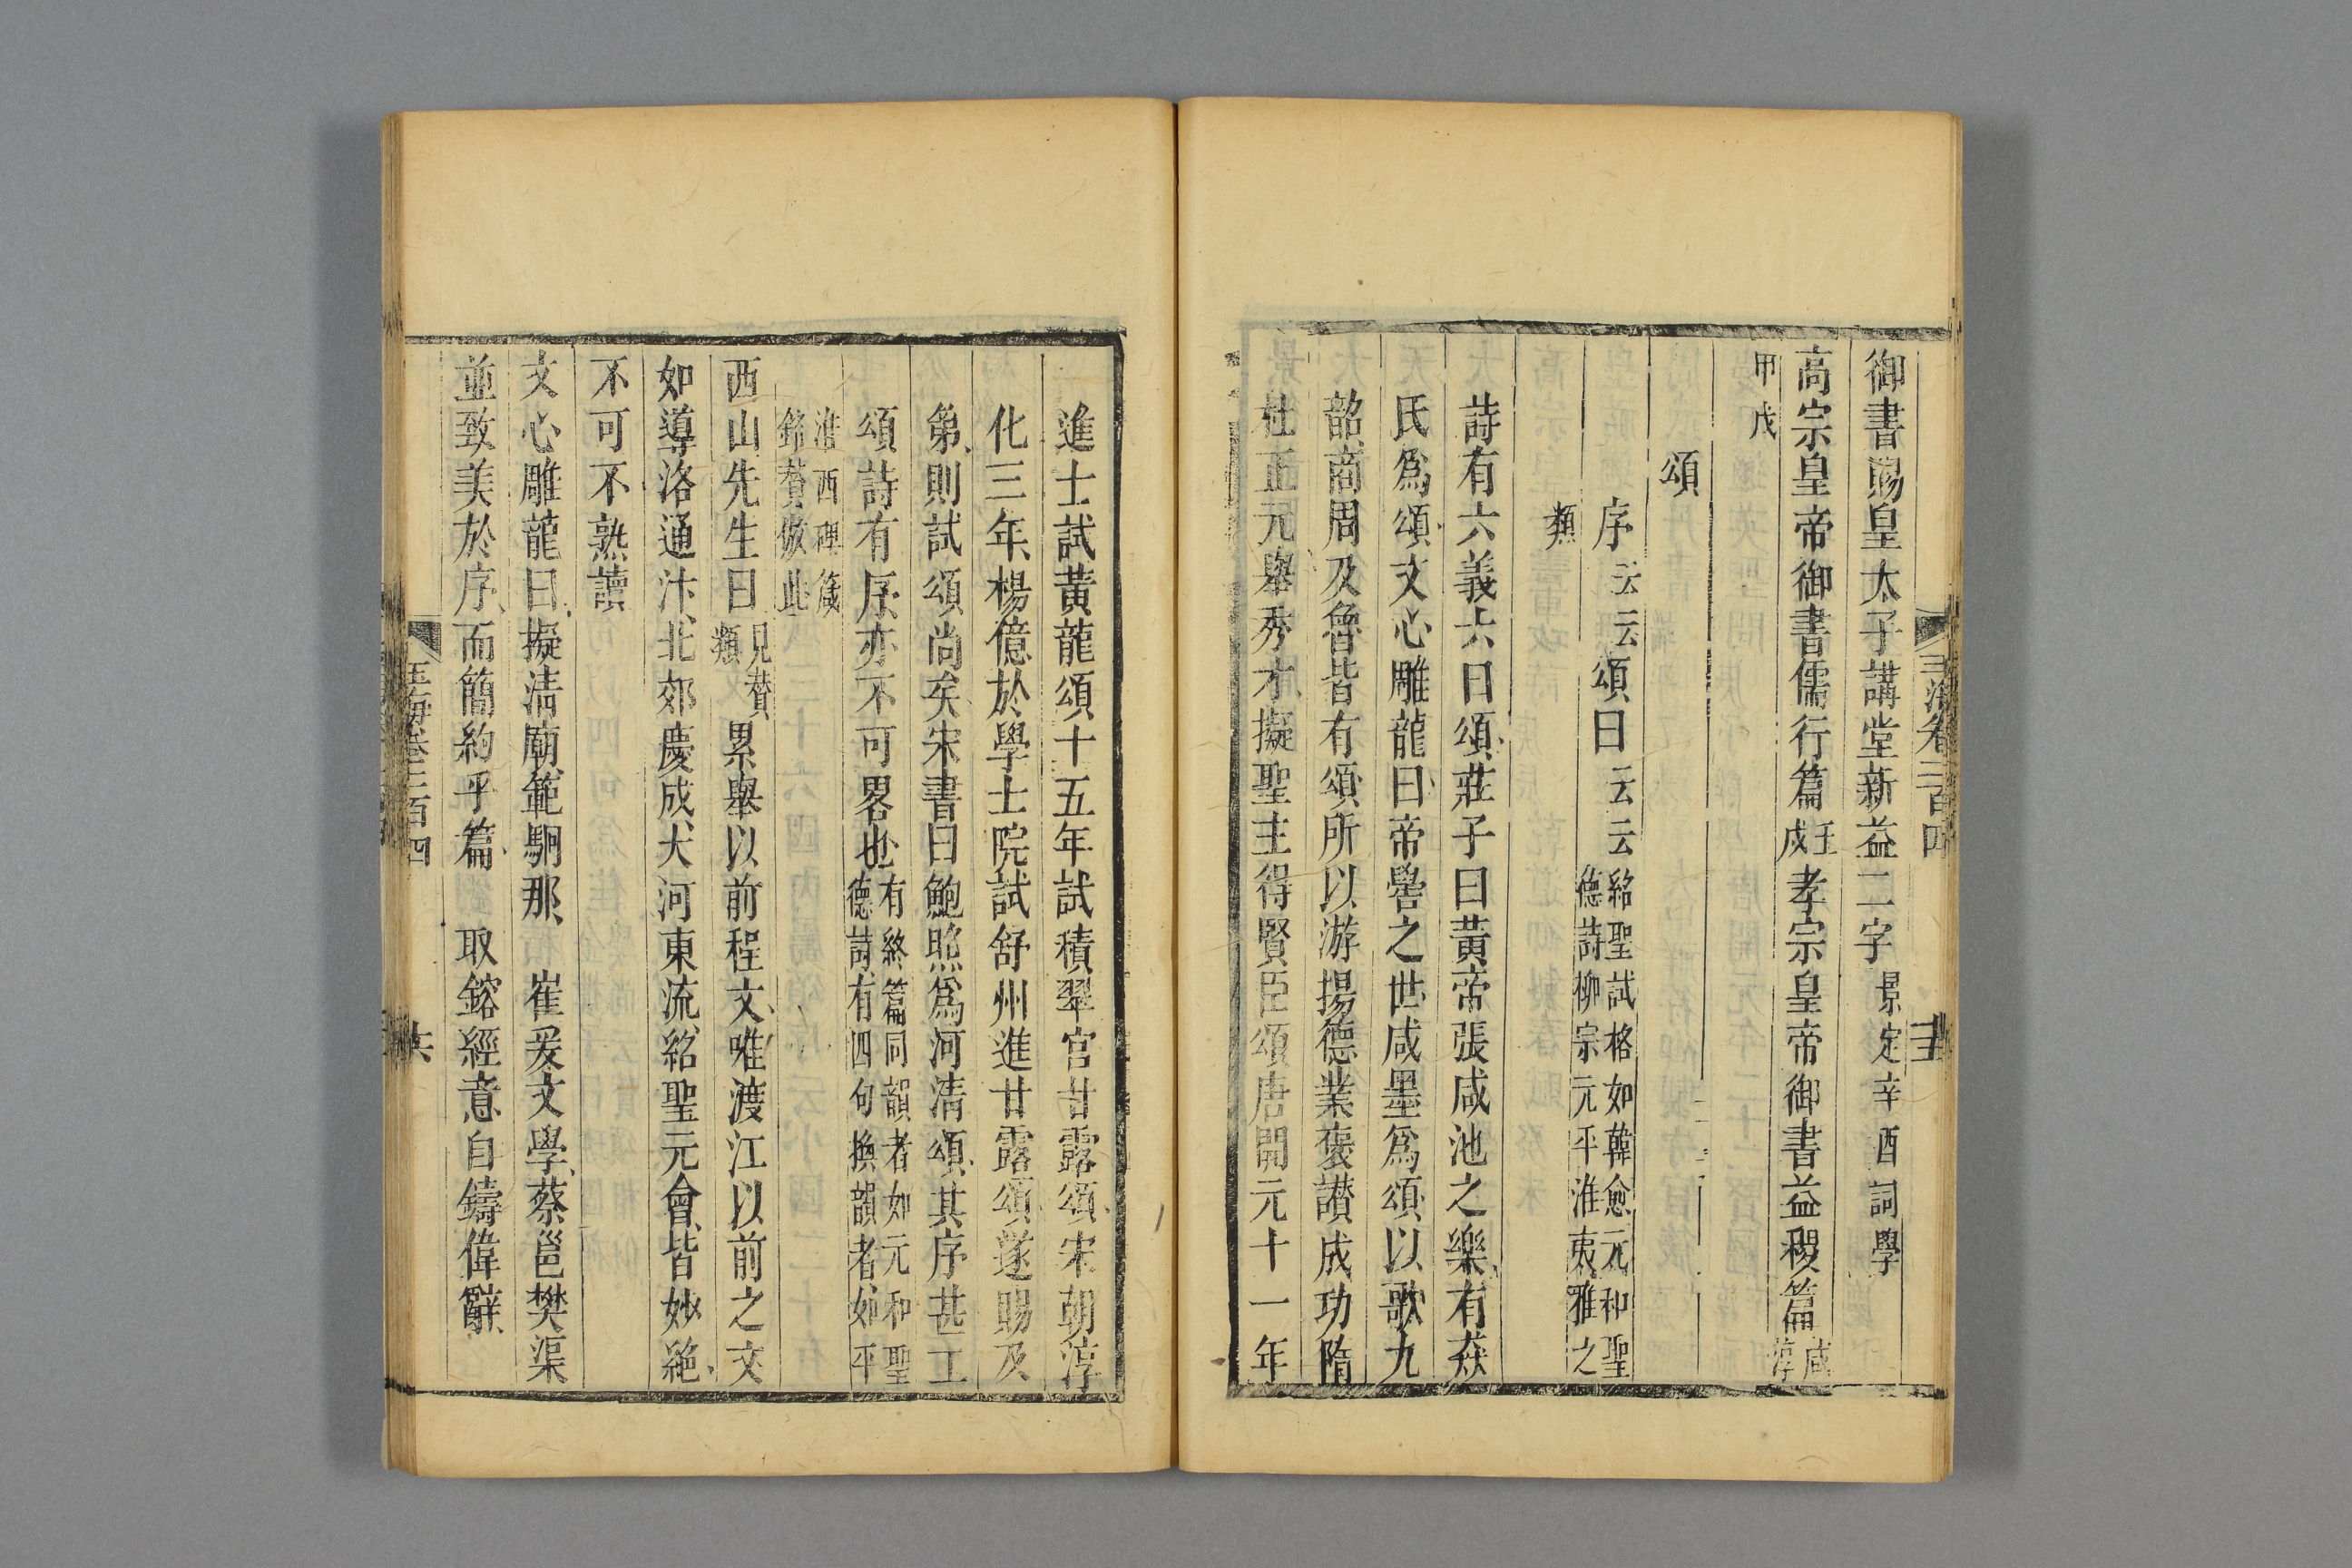 御書賜皇太子講堂新益二字景定辛酉詞學
高宗皇帝御書儒行篇壬戌孝宗皇帝御書益稷篇咸淳
甲戌
頌
序云云頌曰云云紹聖試格如韓愈元和聖德詩柳宗元平淮夷雅之
類
詩有六義六曰頌莊子曰黃帝張咸池之樂有焱
氏爲頌文心雕龍曰帝嚳之世咸墨爲頌以歌九
韶商周及魯皆有頌所以游揚德業褒讃成功隋
杜正元舉秀才擬聖主得賢臣頌唐開元十一年
玉海卷二百四
進士試黃龍頌十五年試積翠宮甘露頌宋朝淳
化三年楊億於學士院試舒州進甘露頌遂賜及
第則試頌尚矣宋書曰鮑照爲河清頌其序甚工
頌詩有序亦不可畧也有終篇同韻者如元和聖德詩有四句換韻者如平
淮西碑箴銘賛倣此
西山先生曰見賛類累舉以前程文唯渡江以前之文
如導洛通汴北郊慶成大河東流紹聖元會皆妙絶
不可不熟讀
文心雕龍曰擬清廟範駉那 崔爰文學蔡邕樊渠
並致美於序而簡約乎篇 取鎔經意自鑄偉辭
玉海卷二百四 六